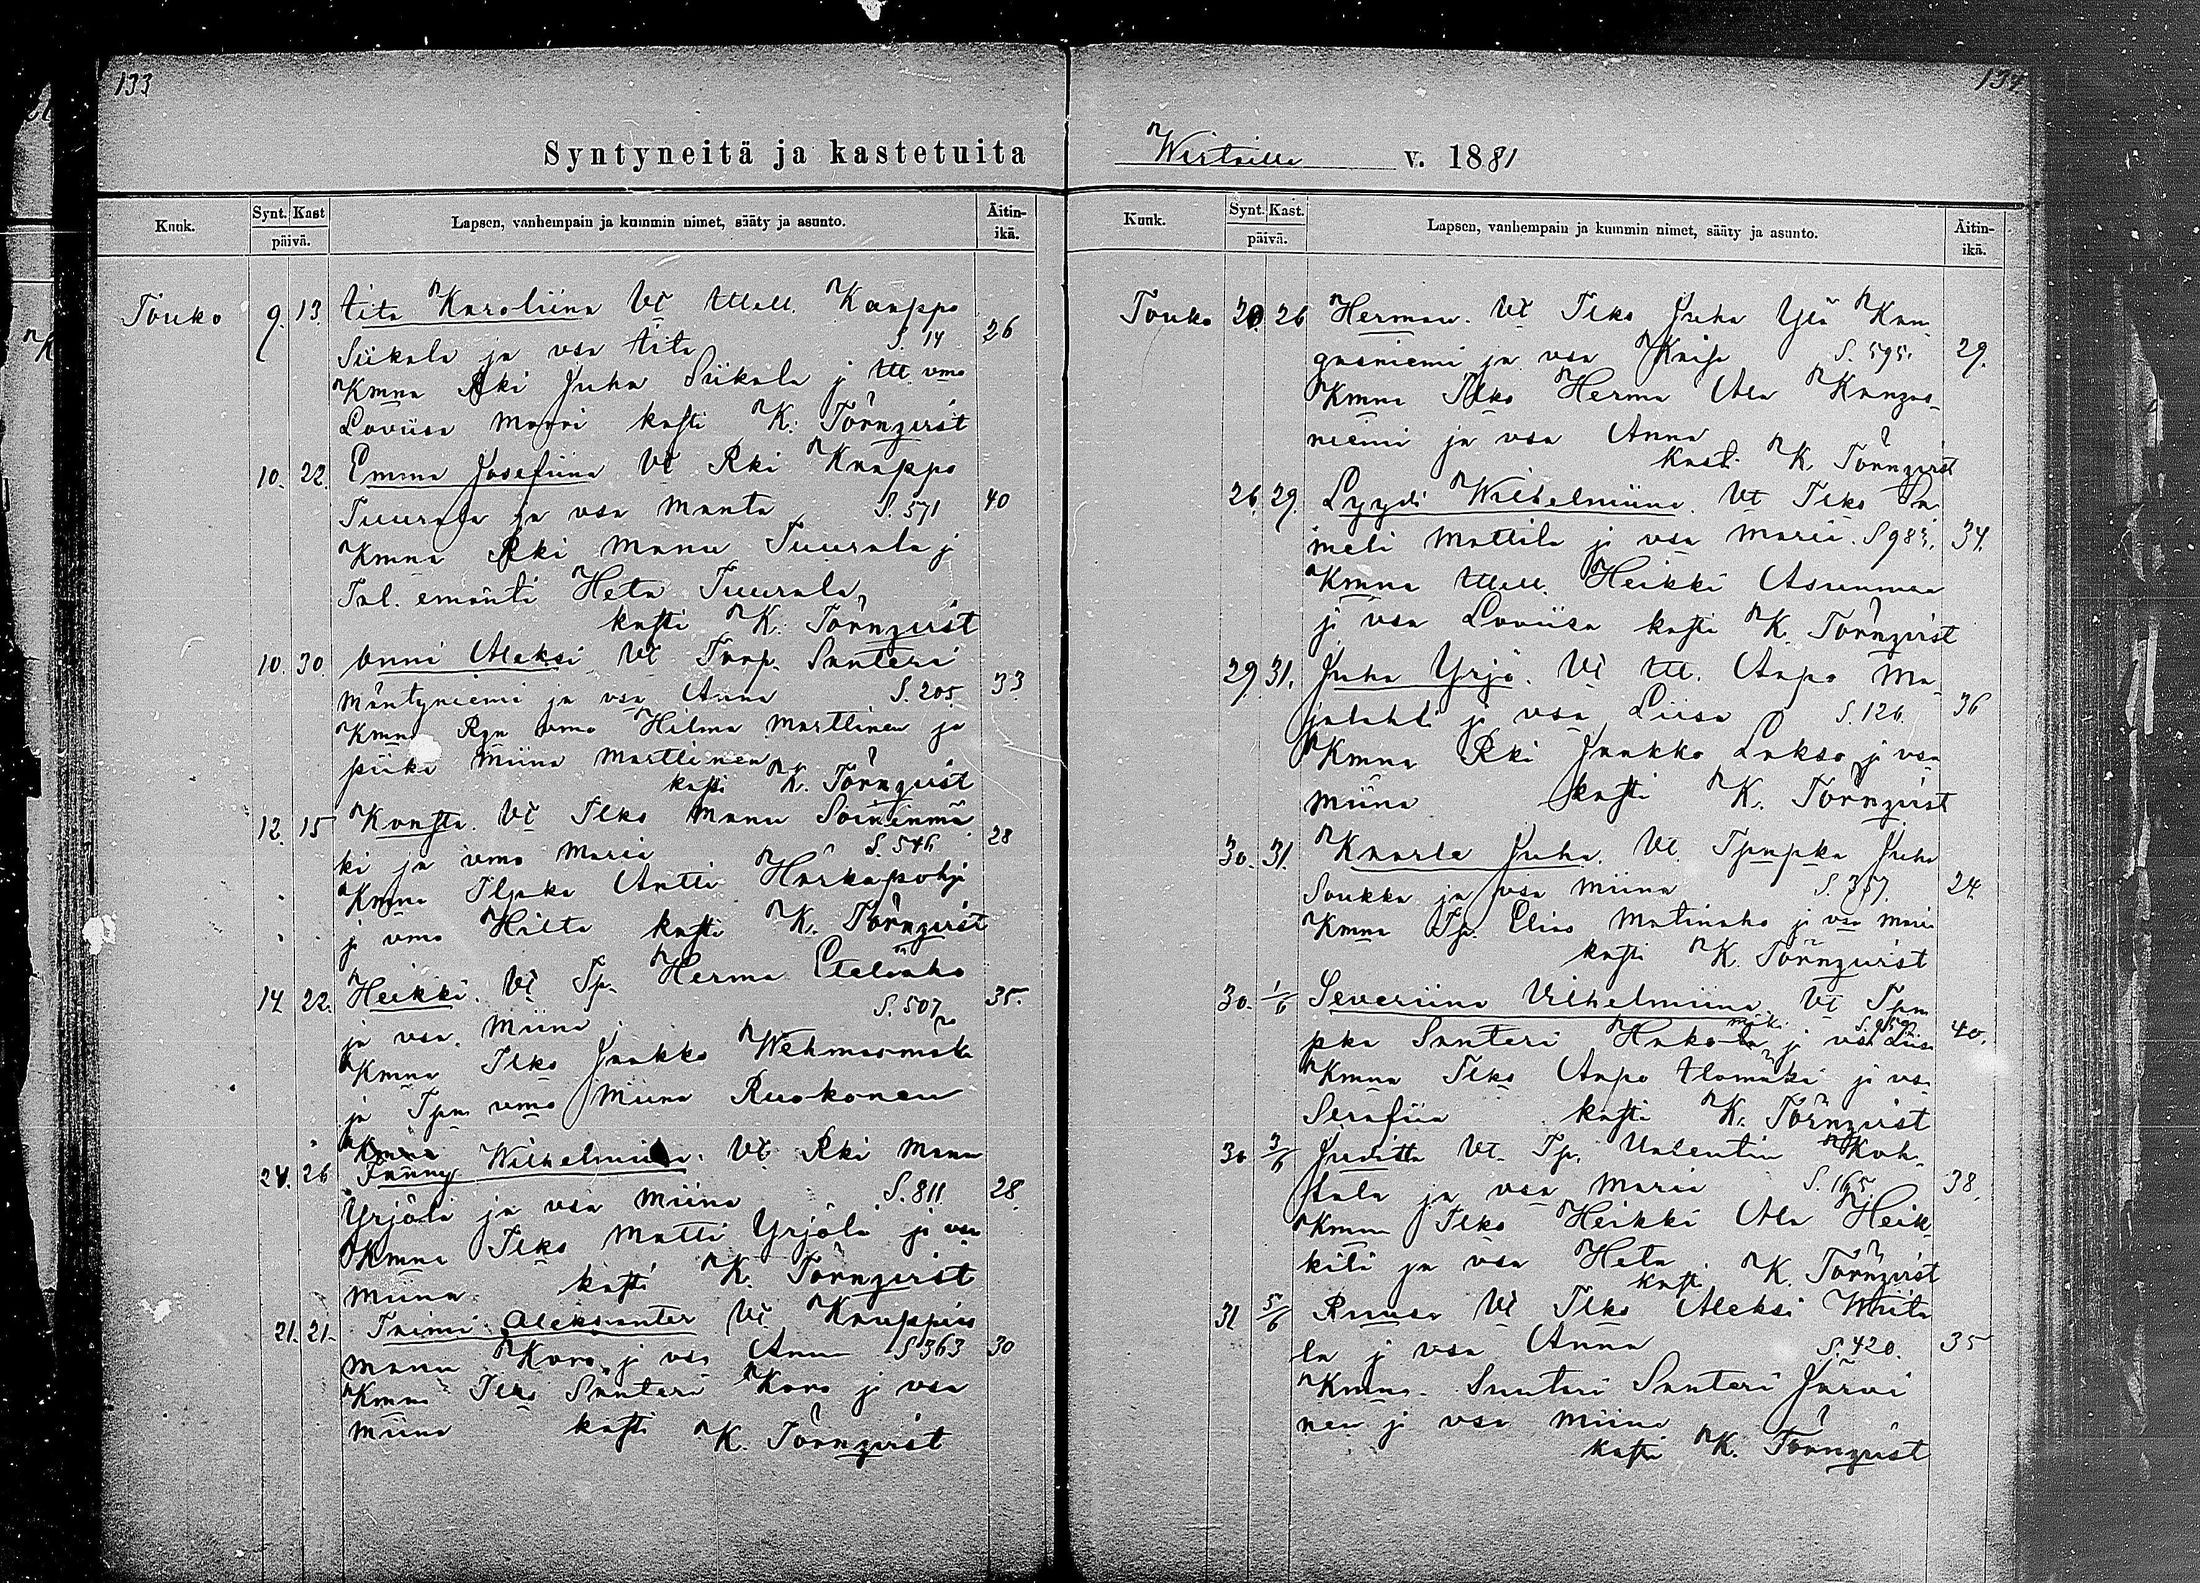 133
Syntyneitä ja kastetuita
Kuuk.
Synt. Kast
päivä.
Lapsen, vanhempain ja kummin nimet, sääty ja asunto.
Äitin-
ikä.
Touko 9. 13. Aita Karoliina Vt Kaappo
Siikala ja vsa Aita S. 14 26
Kmna Rki Juha Siikala j vmo
Loviisa Maari kasti K. Törnqvist
10. 22. Emma Josefiina Vt Rki Kaappo
Tuurala ja vsa Manta S. 571 40
Kmna Rki Manu Tuurala j
Tal. emänti Heta Tuurala,
kasti K. Törnqvist
10. 30. Onni Aleksi Vt Torp. Santeri
Mäntyniemi ja vsa Anna S. 205. 33
Kmna Rgn vmo Hilma Marttinen ja
piika Miina Marttinen
kasti K. Törnqvist
12. 15 Konsta. Vt Tlko Manu Soininmä
ki ja vmo Maria S. 546 28
Kmna Antti Härkäpohj
j vmo Hilta kasti K. Törnqvist
14 22. Heikki. Vt Tp. Herma Eteläaho
ja vsa. Miina S. 507 35.
Kmna Tlko Jaakko Wehmasmäki
ja Tpn vmo Miina Ruokonen
Kmna
24. 26 Fanny Wilhelmiina. Vt Rki Manu
Yrjölä ja vsa Miina S. 811 28.
Kmna Tlko Matti Yrjölä ja vsa
Miina kasti K. Törnqvist
21. 21. Taimi Aleksanter Vt Kauppias
Manu Koro j vsa Anna S 363 30
Kmna Tlko Santeri Koro j vsa
Miina kasti K. Törnqvist
134
Wirtailla v. 1881
Kuuk.
Synt. Kast.
päivä.
Lapsen, vanhempain ja kummin nimet, sääty ja asunto.
Äitin-
ikä.
Touko 20. 26 Herman. Vt Tlko Juha Ylä Kan
gasniemi ja vsa Kaisa S. 595. 29.
Kmna Tlko Herma Ala Kangas-
niemi ja vsa Anna
Kast. K. Törnqvist
26. 29. Lyydi Wilhelmiina. Vt Tlko Sa
meli Mattila j vsa Maria. S 983. 34.
Kmna Heikki Asunmaa
j vsa Loviisa kasti K. Törnqvist
29. 31. Juha Yrjö. Vt Aapo Ma
jalahti j vsa Liisa S. 126. 36
Kmna Rki Jaakko Lakso j vsa
Miina kasti K. Törnqvist
30. 31. Kaarle Juha. Vt. Juha
Soukka ja vsa Miina S. 357. 24
Kmna Tp. Elias Matinaho j vsa Maria
kasti K. Törnqvist
30. 1/6 Severiina Vilhelmiina Vt Tpm
pka Santeri Hako mäki j vsa Liisa 40.
Kmna Tlko Aapo Alamäki j vsa
Serafiia kasti K. Törnqvist
30 3/6 Juditta Vt. Tp. Valentin Koh-
tala ja vsa Maria S. 165. 38.
Kmna Tlko Heikki Ala Heik
kilä ja vsa Heta
kasti K. Törnqvist
31 5/6 Ruusa Vt Tlko Aleksi Wiita
la j vsa Anna S. 420. 35
Kmna. Suutari Santeri Järvi
nen j vsa Miina
kasti K. Törnqvist